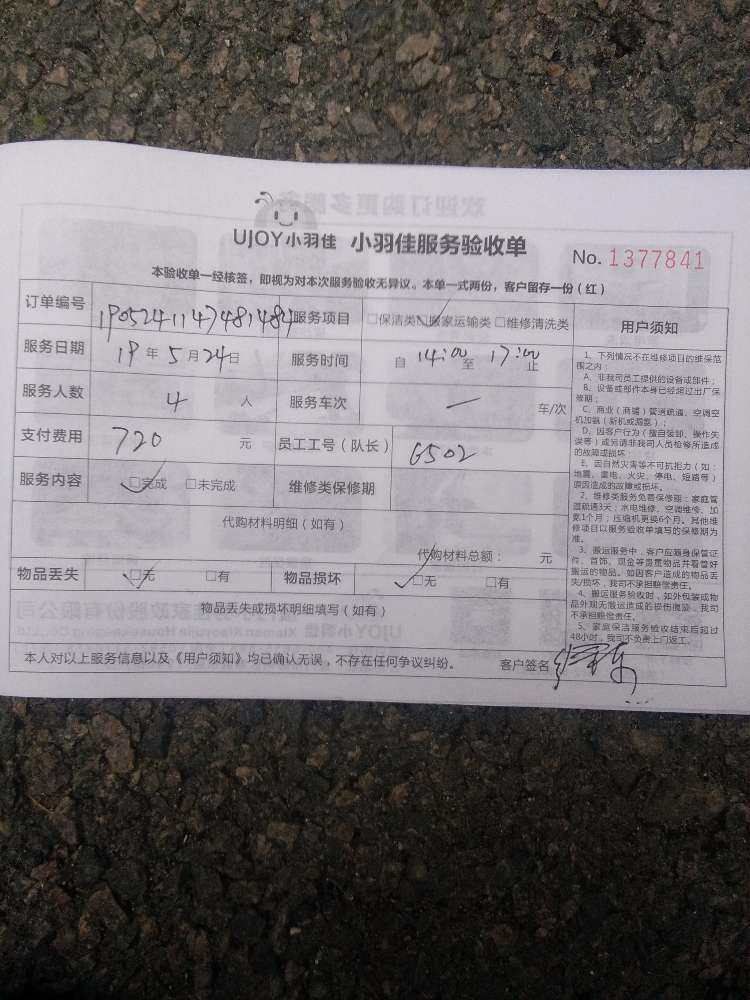 UJOY小羽佳 小羽佳服务验收单 No. 1377841
本验收单一经核签，即视为对本次服务验收无异议。本单一式两份，客户留存一份（红）
订单编号 1905241147481484 服务项目 □保洁类 □搬家运输类 □维修清洗类
服务日期 19 年 5 月 24 日 服务时间 自 14:00 至 17:00 止
服务人数 4 人 服务车次 — 车/次
支付费用 720 元 员工工号（队长） 6502
服务内容 □完成 □未完成 维修类保修期
代购材料明细（如有）
代购材料总额： 元
物品丢失 □无 □有 物品损坏 □无 □有
物品丢失或损坏明细填写（如有）
本人对以上服务信息以及《用户须知》均已确认无误，不存在任何争议纠纷。 客户签名
用户须知
1、下列情况不在维修项目的维保范
围之内：
A、非我司员工提供的设备或部件；
B、设备或部件本身已经超过出厂保
修期；
C、商业（商铺）管道疏通、空调空
机加器（新机或漏器）；
D、因客户行为（擅自装卸、操作失
误等）或另请非我司人员检修所造成
的故障或损坏
E、因自然灾害等不可抗拒力（如：
地震、雷电、火灾、停电、短路等）
原因造成的故障或损坏。
2、维修类服务免费保修期：家庭管
道疏通3天；水电维修、空调维修、加
氟1个月；压缩机更换6个月。其他维
修项目以服务验收单填写的保修期为
准。
3、搬运服务中，客户应随身保管证
件、首饰、现金等贵重物品并看管好
搬运的物品。如因客户造成的物品丢
失/损坏，我司不承担赔偿责任。
4、搬运服务验收时，如外包装或物
品外观无搬运造成的损伤痕迹，我司
不承担赔偿责任。
5、家庭保洁服务验收结束后超过
48小时，我司不负责上门返工。
欢迎订购更多服务